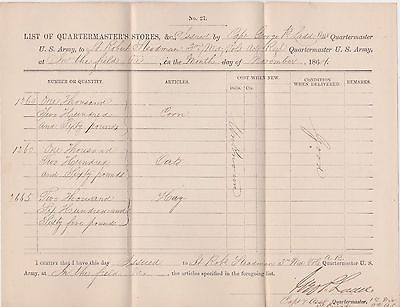 No. 27.
LIST OF QUARTERMASTER'S STORES, &c Issued by Capt George R Ladd Quartermaster
U. S. Army, to Lt Robert Steadman 5" Wis Vols Quartermaster U. S. Army,
at In the field Va on the Month day of November , 1864
NUMBER OR QUANTITY ARTICLES COST WHEN NEW. CONDITION WHEN DELIVERED.
DOLS. CTS.
1260 One Thousand
Two Hundred Corn Unknown Good
and Sixty pounds
1260 One Thousand
Two Hundred Oats
and Sixty pounds
2665 Two Thousand Hay
Six Hundred and
Sixty five pounds
I CERTIFY that I have this day Issued to Lt Robt Steadman 5" Wis Vols Quartermaster U. S.
Army, at In the field Va the articles specified in the foregoing list.
Geo R Ladd
Capt &